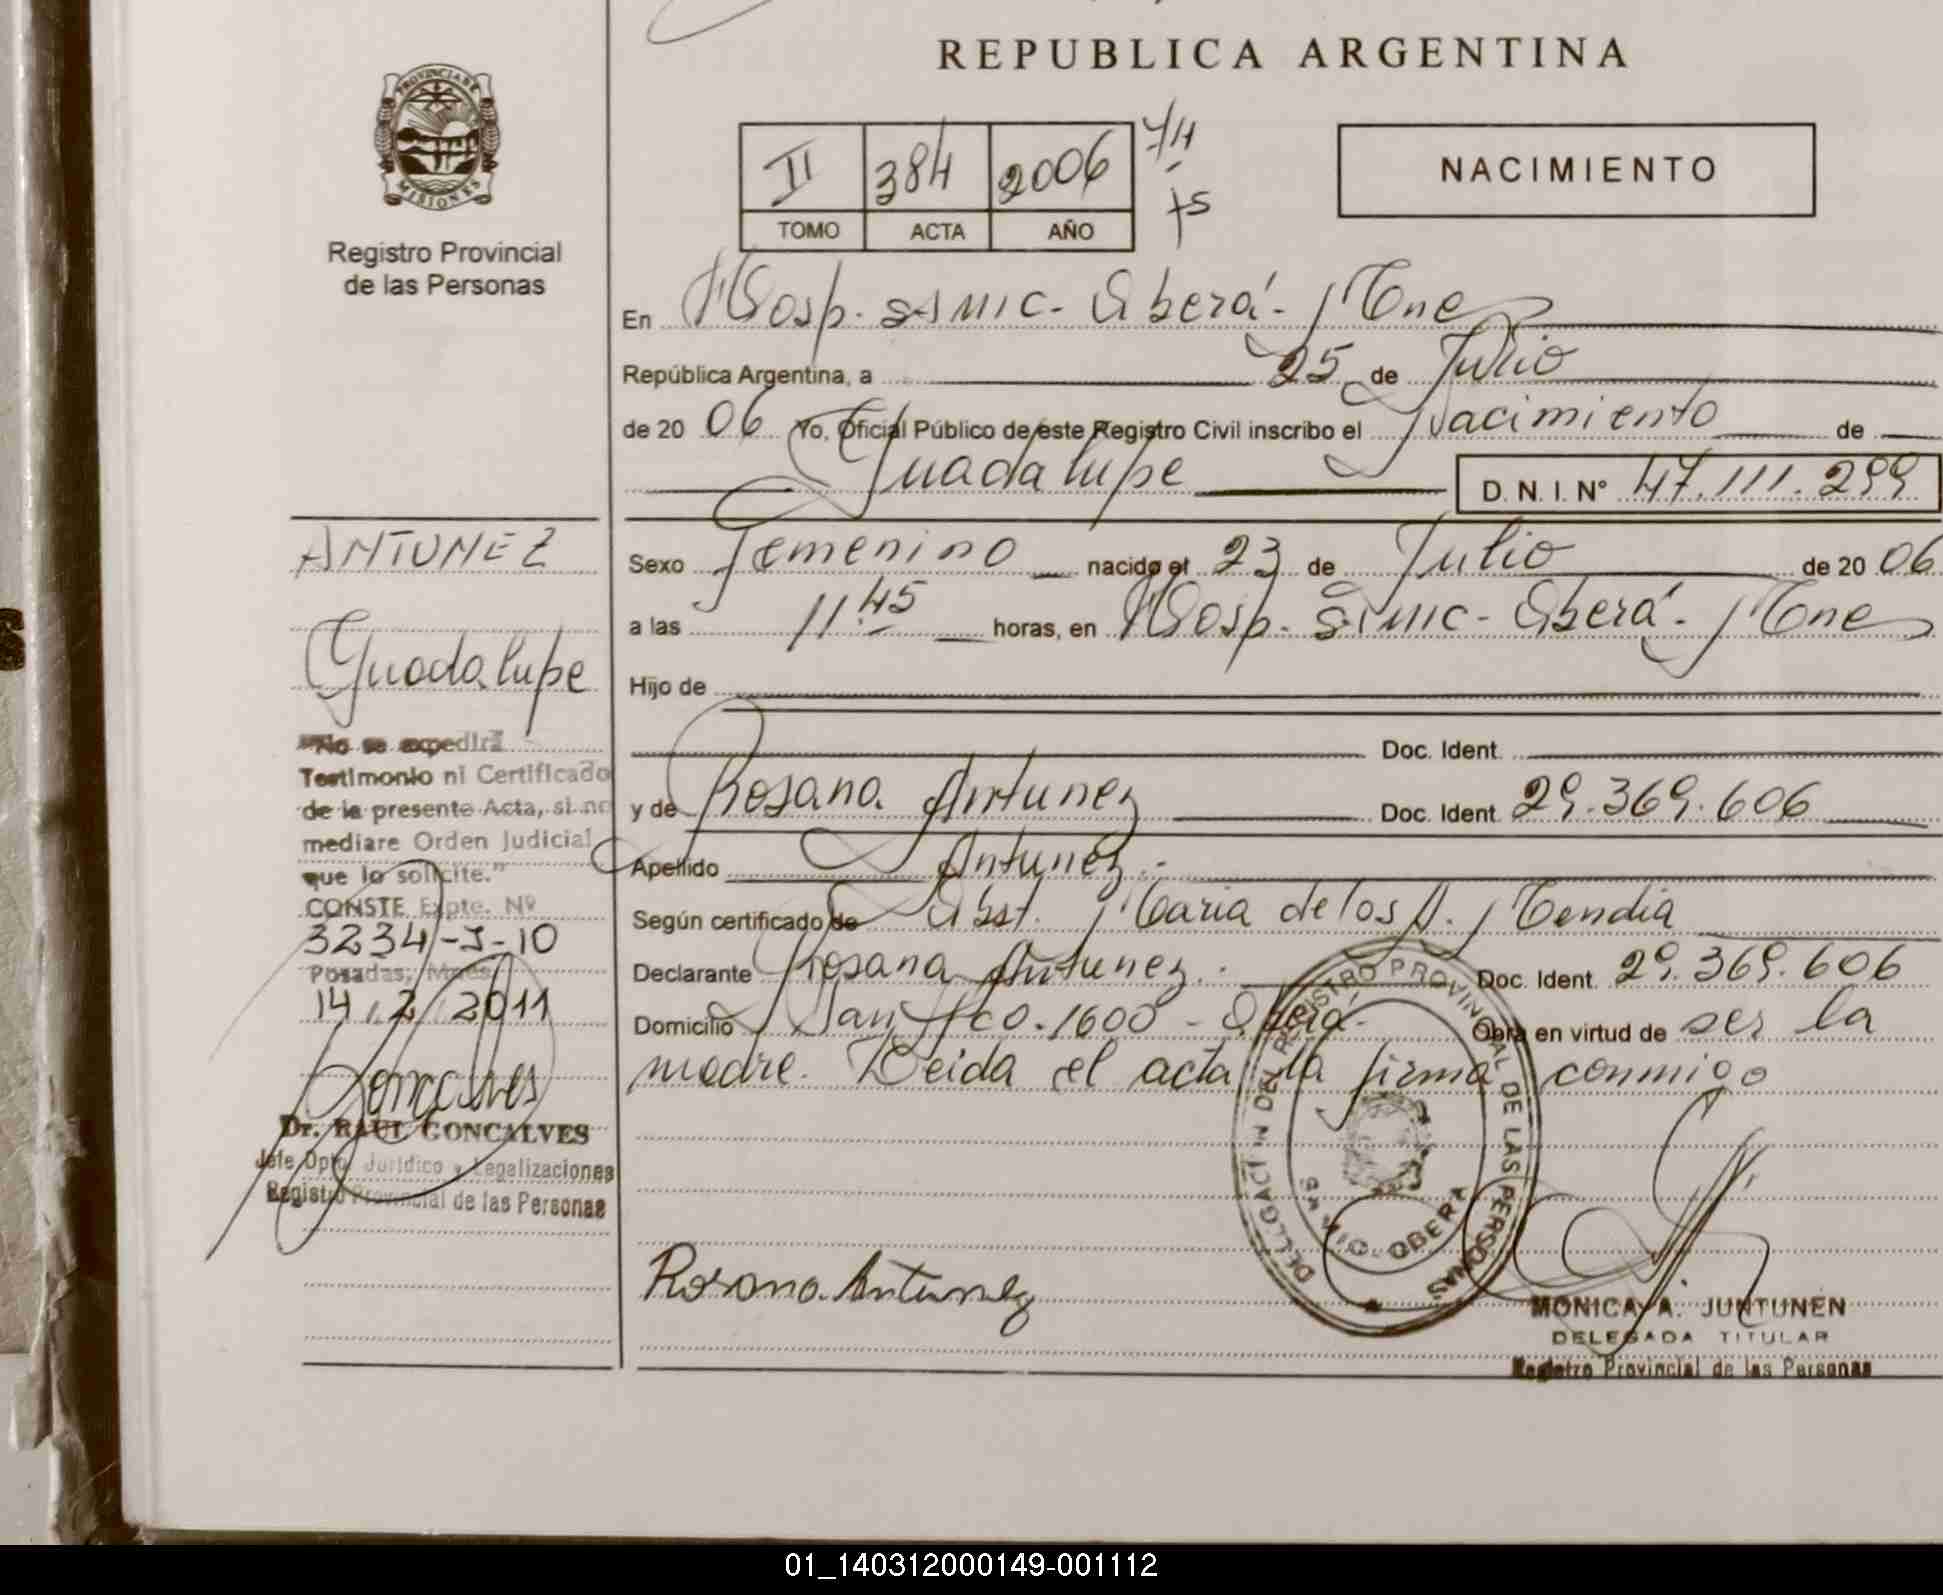 REPUBLICA ARGENTINA
PROVINCIA DE
MISIONES
Registro Provincial
de las Personas
II 384 2006
TOMO ACTA AÑO
NACIMIENTO
En Hosp. SAMIC - Oberá - Mnes
República Argentina, a 25 de Julio
de 20 06 Yo, Oficial Público de este Registro Civil inscribo el Nacimiento de
Guadalupe D. N. I. Nº 47.111.299
Sexo Femenino nacido el 23 de Julio de 20 06
a las 11 45 horas, en Hosp. SAMIC - Oberá - Mnes
Hijo de
Doc. Ident.
y de Rosana Antunez Doc. Ident. 29.369.606
Apellido Antunez.
Según certificado de Obst. Maria de los A. Mendia
Declarante Rosana Antunez. Doc. Ident. 29.369.606
Domicilio San Fco. 1600 - Oberá - Obra en virtud de ser la
madre. Leida el acta la firma conmigo
ANTUNEZ
Guadalupe
"No se expedirá
Testimonio ni Certificado
de la presente Acta, si no
mediare Orden Judicial
que lo solicite."
CONSTE Expte. Nº
3234-J-10
Posadas, Mnes.
14 2 2011
Goncalves
Dr. RAUL GONCALVES
Jefe Dpto. Jurídico y Legalizaciones
Registro Provincial de las Personas
Rosana Antunez
DEL REGISTRO PROVINCIAL DE LAS PERSONAS
OBERA
MONICA A. JUNTUNEN
DELEGADA TITULAR
Registro Provincial de las Personas
01_140312000149-001112